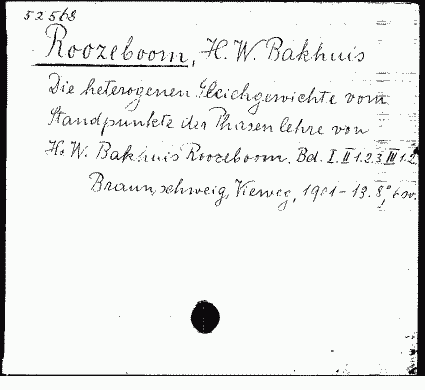 52568
Roozeboom, H. W. Bakhuis
Die heterogenen Gleichgewichte vom
Standpunkte der Phasenlehre von
H. W. Bakhuis Roozeboom. Bd. I. II 1.2.3 III 1.2
Braunschweig, Vieweg, 1901-13. 8°,